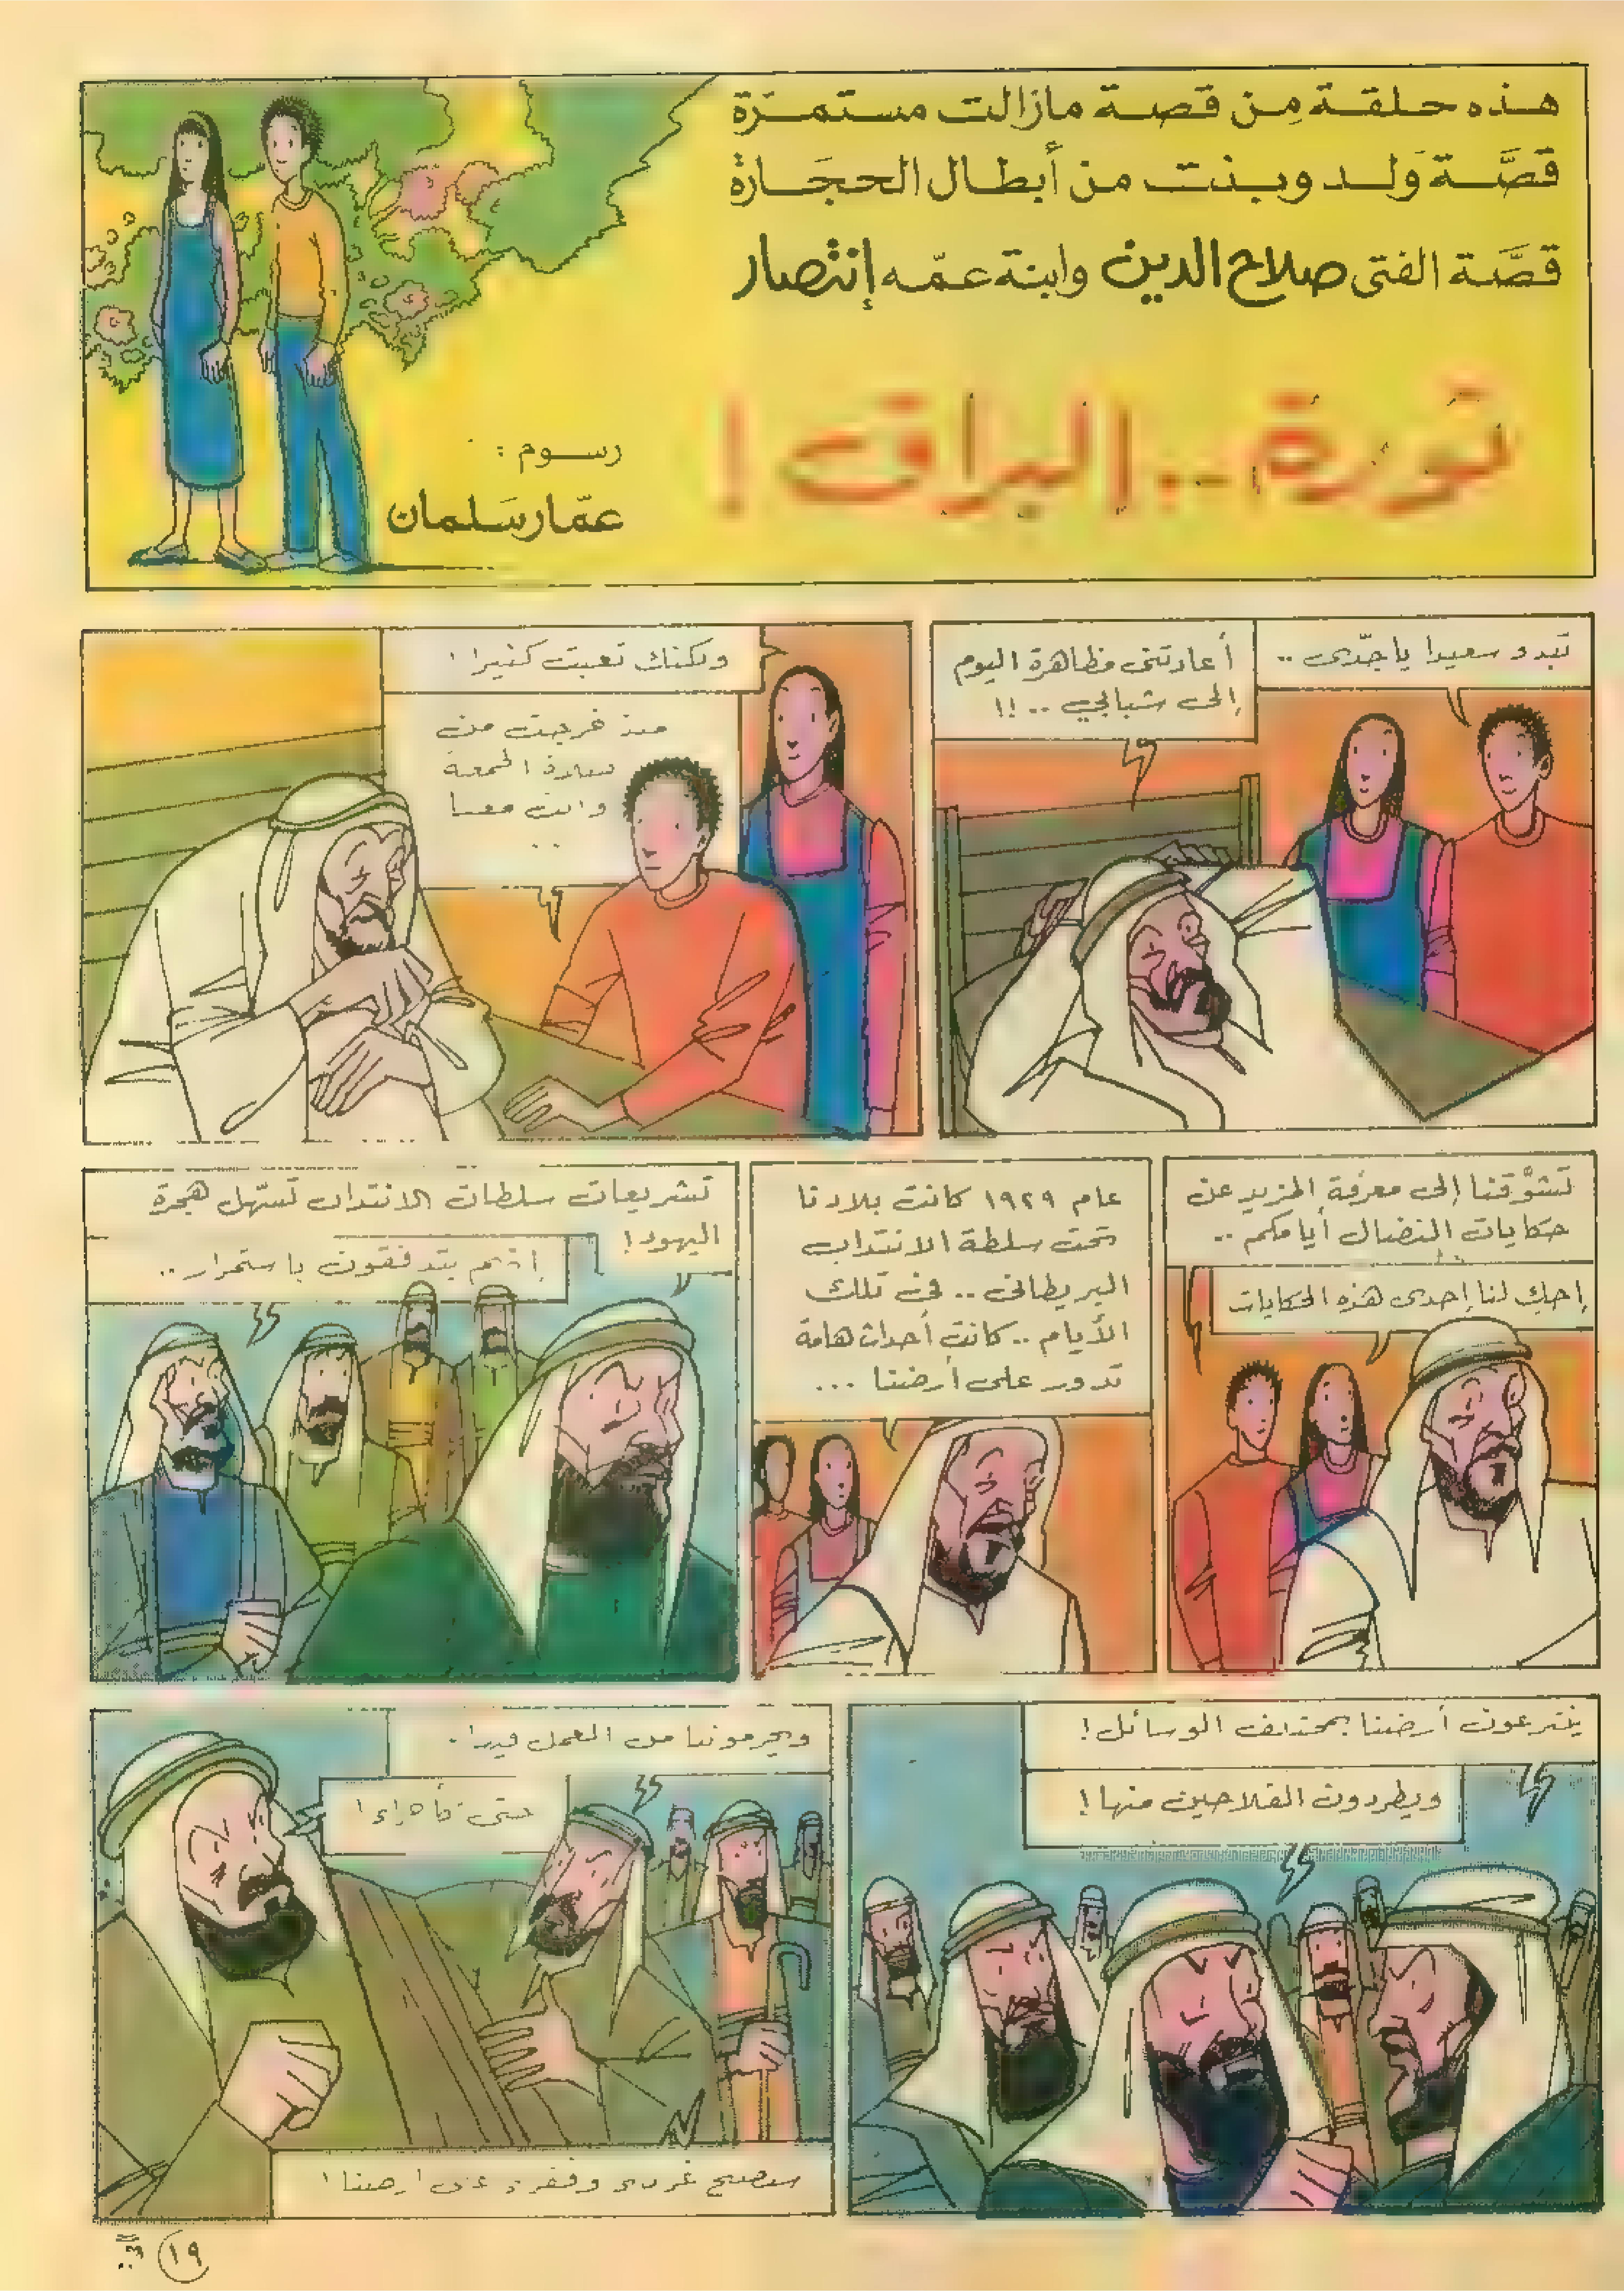 هذه حلقة مِن قصة مازالت مستمرّة
قصَّة وَلد وبنت من أبطال الحجَارة
قصَّة الفتى صلاح الدين وابنة عمّه إنتصار
ثورة .. البراق !
رسوم :
عمّار سَلمان
تبدو سعيدا يا جدّى ..
أعادتنى مظاهرة اليوم
إلى شبابي .. !!
ولكنك تعبت كثيرا !
منذ خرجت من
صلاة الجمعة
وانت معنا
..
تشوّقنا إلى معرفة المزيد عن
حكايات النضال أيامكم ..
إحكِ لنا إحدى هذه الحكايات
عام ١٩٢٩ كانت بلادنا
تحت سلطة الانتداب
البريطانى .. فى تلك
الأيام .. كانت أحداث هامة
تدور على أرضنا ...
تشريعات سلطات الانتداب تسّهل هجرة
اليهود !
إنهم يتدفقون باستمرار ..
ينتزعون أرضنا بمختلف الوسائل !
ويطردون الفلاحين منها !
ويحرموننا من العمل فيها .
حتى كأجراء !
سنصبح غرباء وفقراء على أرضنا !
١٩